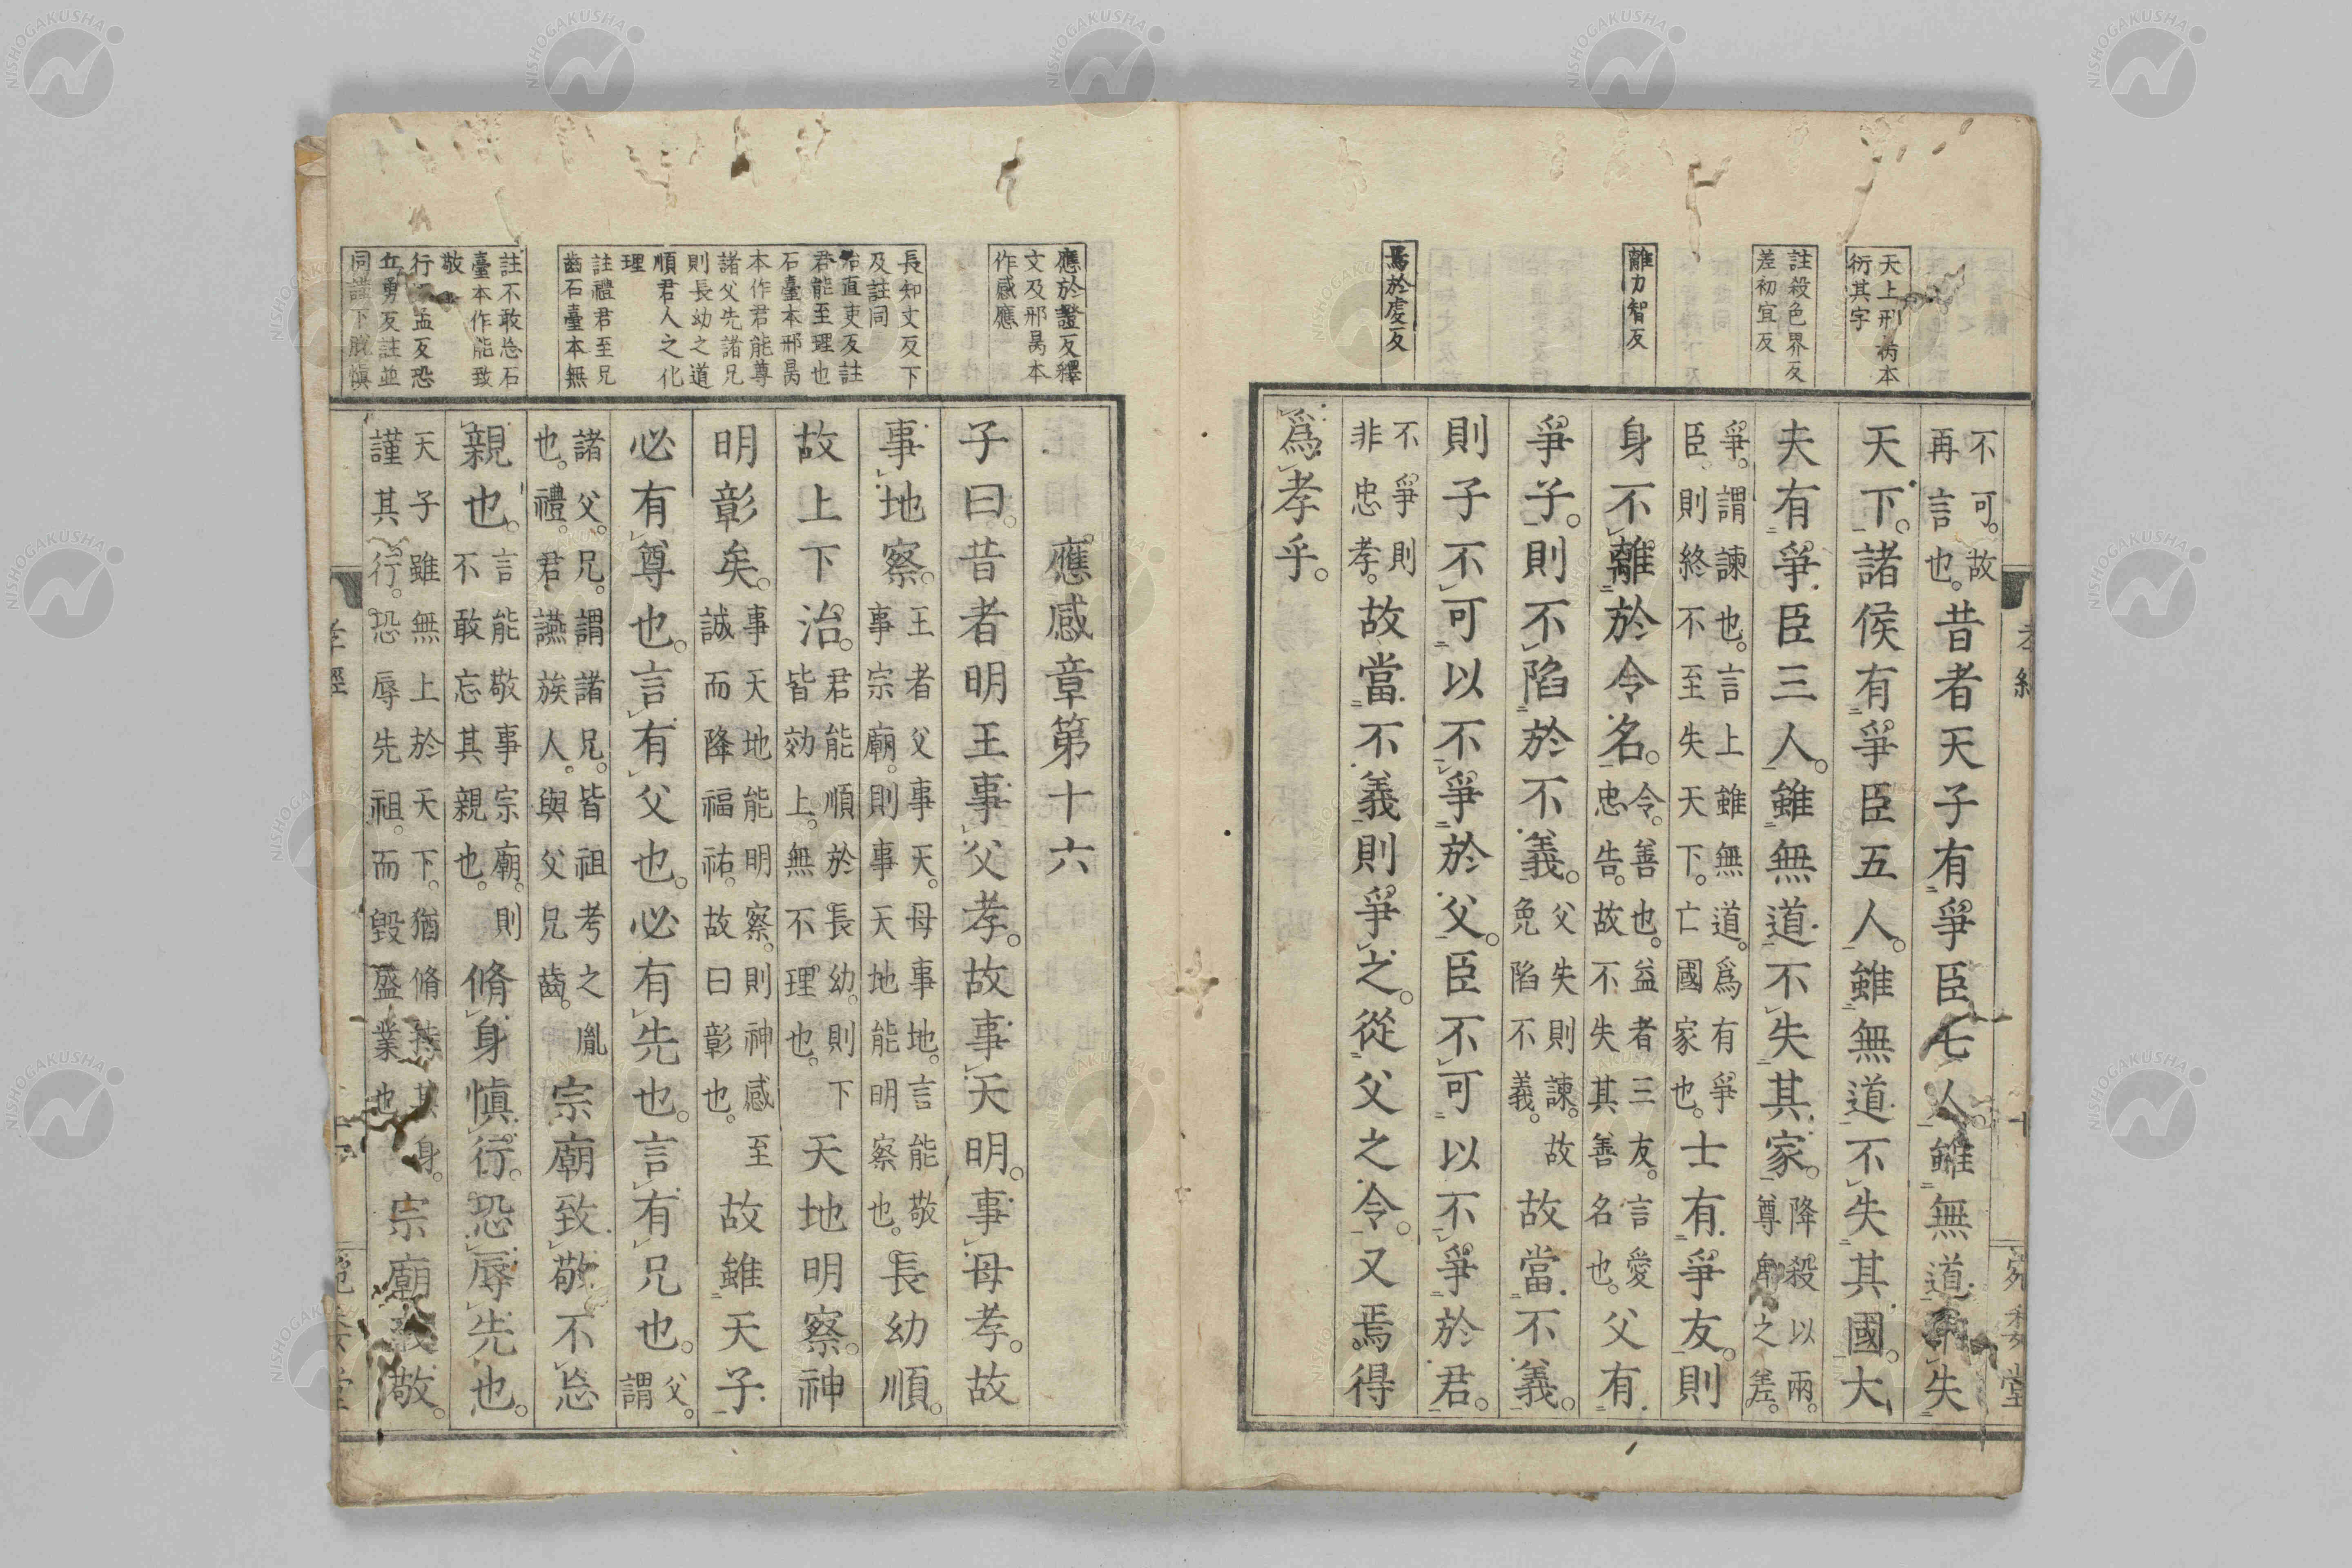 天上刑昺本
衍其字
註殺色界反
差初宜反
離力智反
焉於虔反
不可。故
再言也。
昔者天子有爭臣七人。雖無道。不失
天下。諸侯有爭臣五人。雖無道不失其國。大
夫有爭臣三人。雖無道不失其家。
降殺以兩。
尊卑之差。
爭。謂諫也。言上雖無道。爲有爭
臣。則終不至失天下。亡國家也。
士有爭友。則
身不離於令名。
令。善也。益者三友。言愛
忠告。故不失其善名也。
父有
爭子。則不陷於不義。
父失則諫。故
免陷不義。
故當不義。
則子不可以不爭於父。臣不可以不爭於君。
不爭則
非忠孝。
故當不義則爭之。從父之令。又焉得
爲孝乎。
孝經
宛委堂
應於證反釋
文及邢昺本
作感應
長知丈反下
及註同
治直吏反註
君能至理也
石臺本邢昺
本作君能尊
諸父先諸兄
則長幼之道
順君人之化
理
註禮君至兄
齒石臺本無
註不敢忘石
臺本作能致
敬
行下孟反恐
丘勇反註並
同謹下脫愼
應感章第十六
子曰。昔者明王事父孝。故事天明。事母孝。故
事地察。
王者父事天。母事地。言能敬
事宗廟。則事天地能明察也。
長幼順。
故上下治。
君能順於長幼。則下
皆効上。無不理也。
天地明察。神
明彰矣。
事天地能明察。則神感至
誠而降福祐。故曰彰也。
故雖天子
必有尊也。言有父也。必有先也。言有兄也。
父。
謂
諸父。兄。謂諸兄。皆祖考之胤
也。禮。君讌族人。與父兄齒。
宗廟致敬不忘
親也。
言能敬事宗廟。則
不敢忘其親也。
脩身愼行。恐辱先也。
天子雖無上於天下。猶脩持其身。
謹其行。恐辱先祖。而毀盛業也
宗廟致敬。
孝經
宛委堂